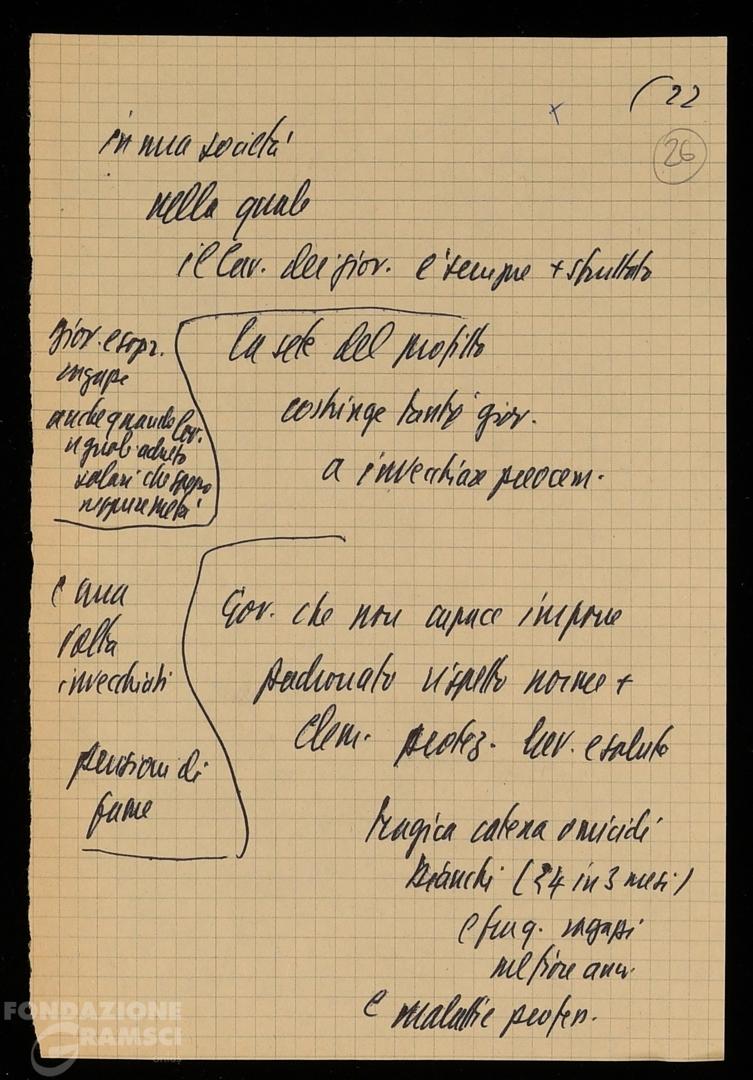 (22
x
26
in una società
nella quale
il lav. dei giov. è sempre + sfruttato
giov. e sopr.
ragazze
anche quando lav.
uguale adulto
salari che spesso
neppure metà
la sete del profitto
costringe tanti giov.
a invecchiare precocem.
e una
volta
invecchiati
pensioni di
fame
Gov. che non capace imporre
padronato rispetto norme +
elem. protez. lav. e salute
tragica catena omicidi
bianchi (24 in 3 mesi)
e ragazzi
nel fiore anni
e malattie profess.
FONDAZIONE
GRAMSCI